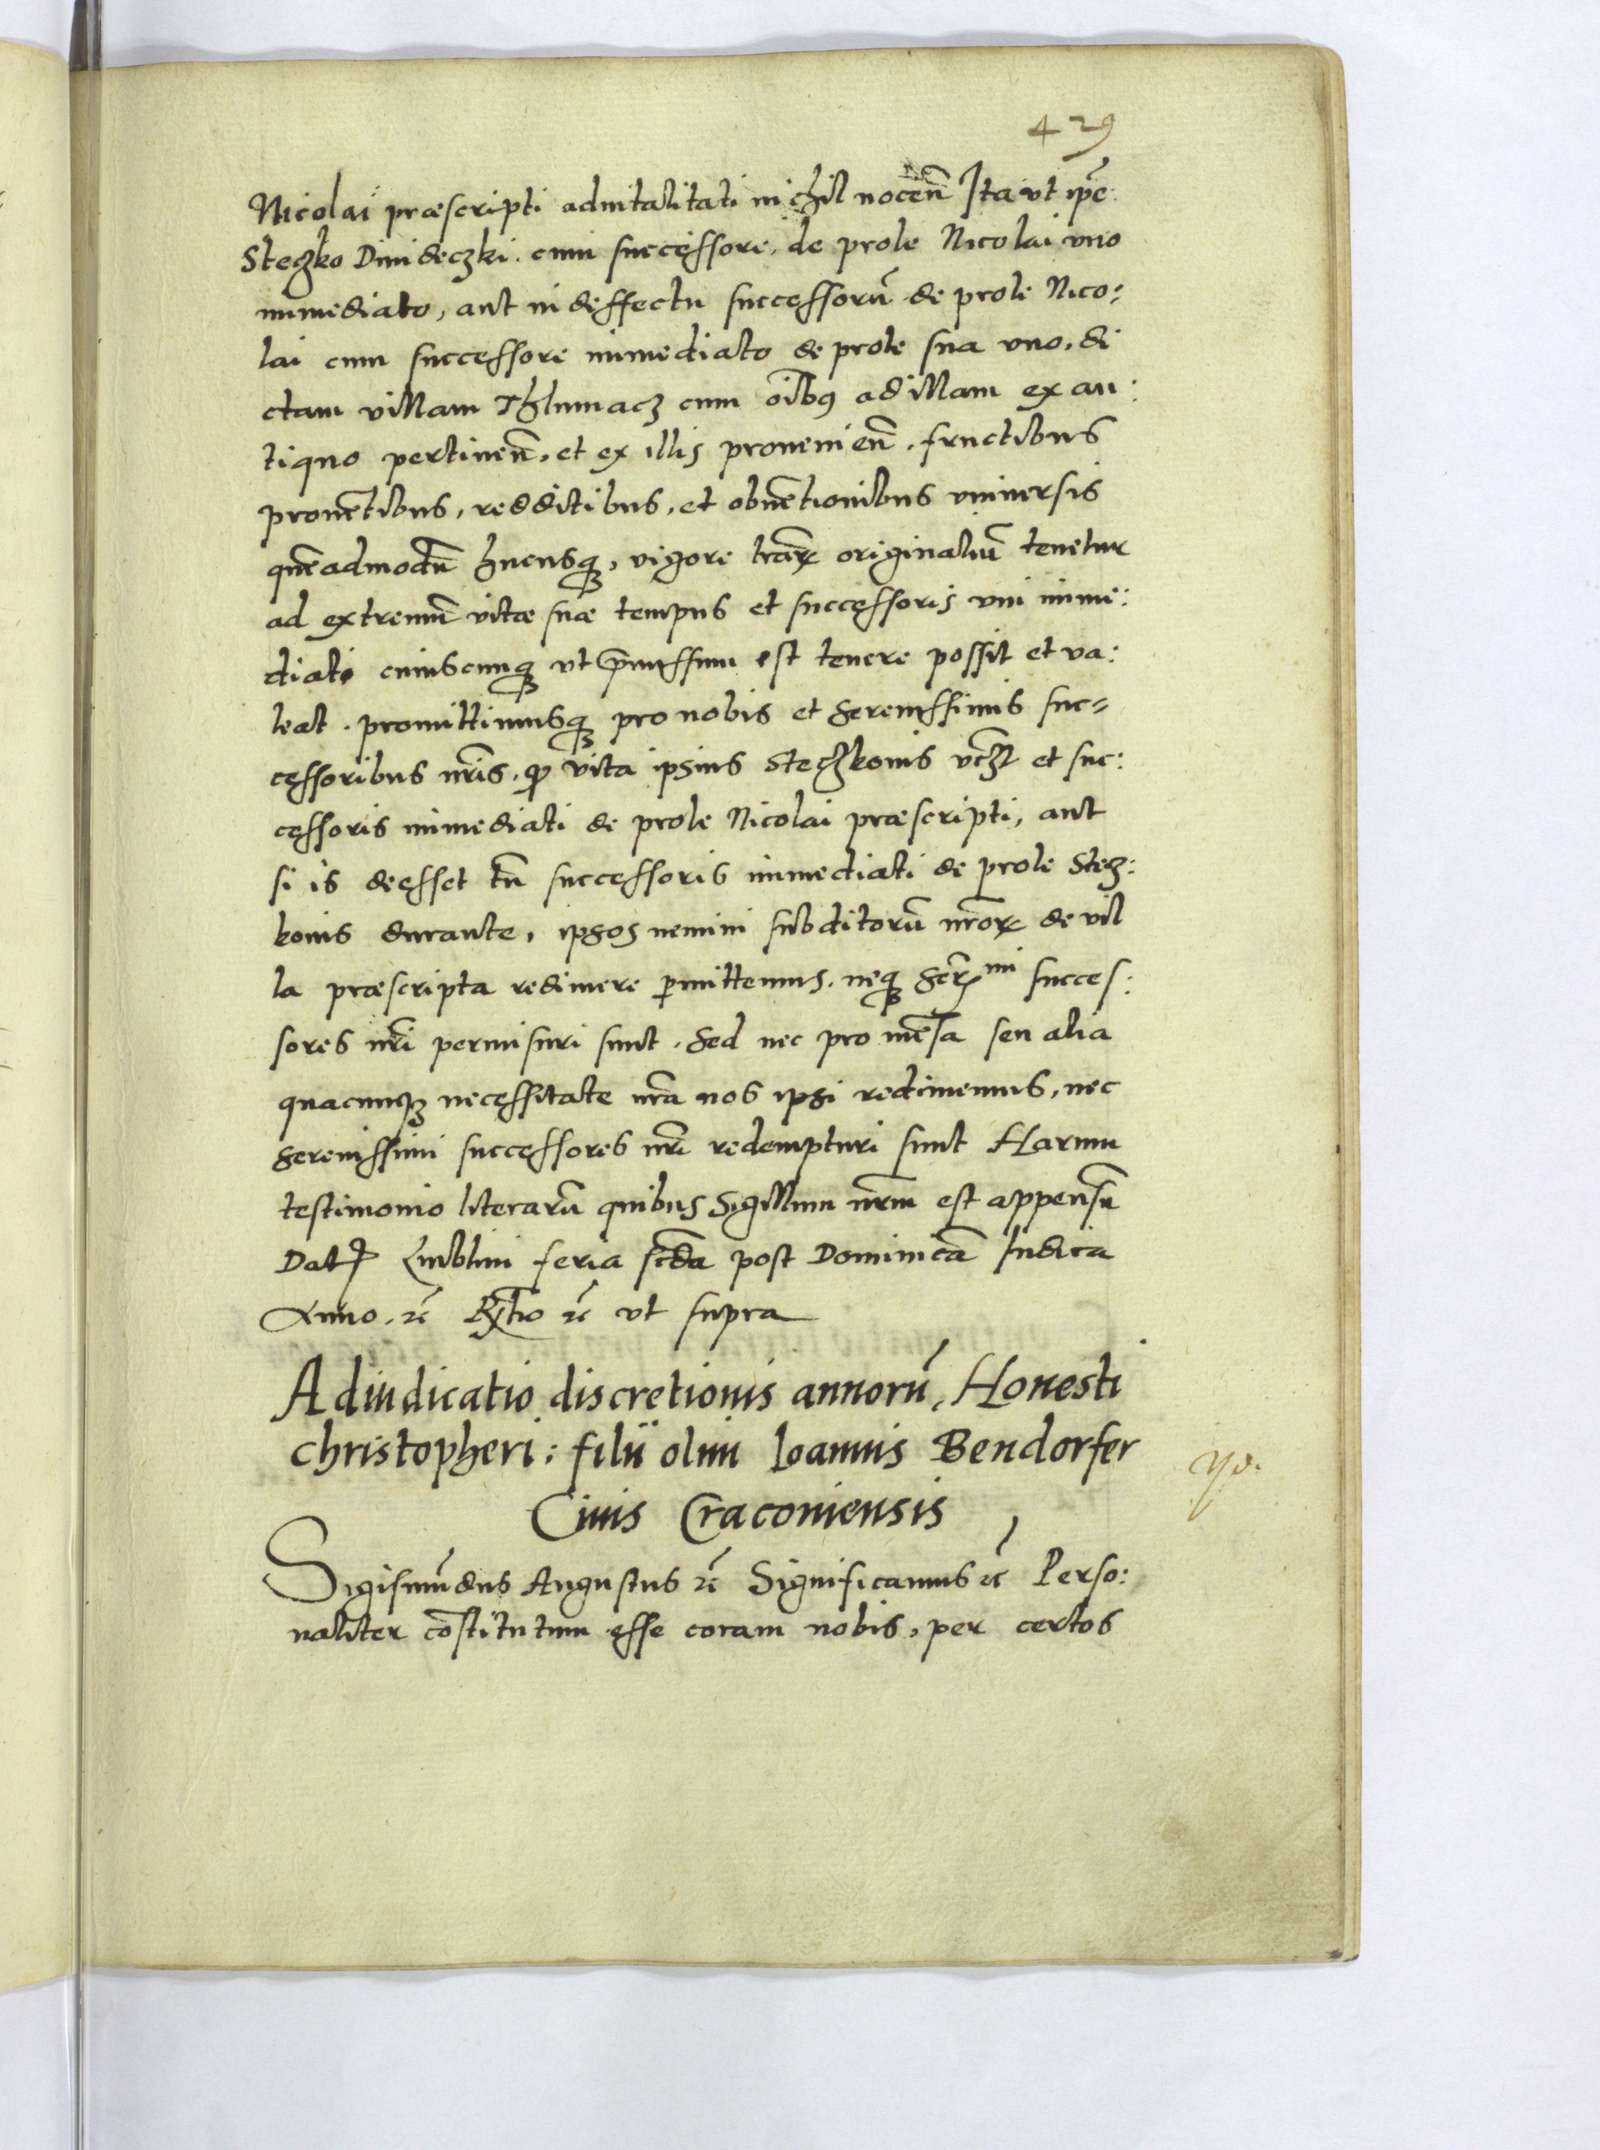 429
Nicolai præscripti aduitalitati nichil nocen̄ Ita vt ip̄e
Steczko Dinideczki. cum successore, de prole Nicolai vno
immediato, aut in deffectu successorū de prole Nico:
lai cum successore immediato de prole sua vno, di
ctam villam Thlumacz cum oībus ad illam ex an:
tiquo pertinen̄, et ex illis prouenien̄. fructibus
prouētibus, redditibus, et obuētionibus vniuersis
quēadmodū hucusq₃, vigore lr̄arꝝ originaliū tenetur
ad extremū vitæ suæ tempus et successoris vni imme:
diati cuiuscunq₃ vt p̄missum est tenere possit et va:
leat. promittimusq₃ pro nobis et Serenissimis suc=
cessoribus nr̄is, ꝙ vita ipsius Steczkonis vcꝫt et suc:
cessoris immediati de prole Nicolai præscripti, aut
si is deesset tū successoris immediati de prole Stecz:
konis durante, ipsos nemini subditorū nr̄orꝝ de vil
la præscripta redimere ꝑmittemus, neq₃ Ser^mi succes:
sores nr̄i permisuri sunt. Sed nec pro mēsa seu alia
quacunq₃ necessitate nr̄a nos ipsi redimemus, nec
Serenissimi successores nr̄i redempturi sunt Harum
testimonio literarū quibus Sigillum nr̄m est appensū
Dat̄ Lublini feria scd̄a post Dominicā Iudica
Anno. ꝛc̄ ꝛc̄ vt supra
Adiudicatio discretionis annorū, Honesti
Christopheri: filii olim Ioannis Bendorfer
Ciuis Cracouiensis
Sigismūdus Augustus ꝛc̄ Significamus ꝛc̄ Perso:
naliter cōstitutum esse coram nobis, per certos